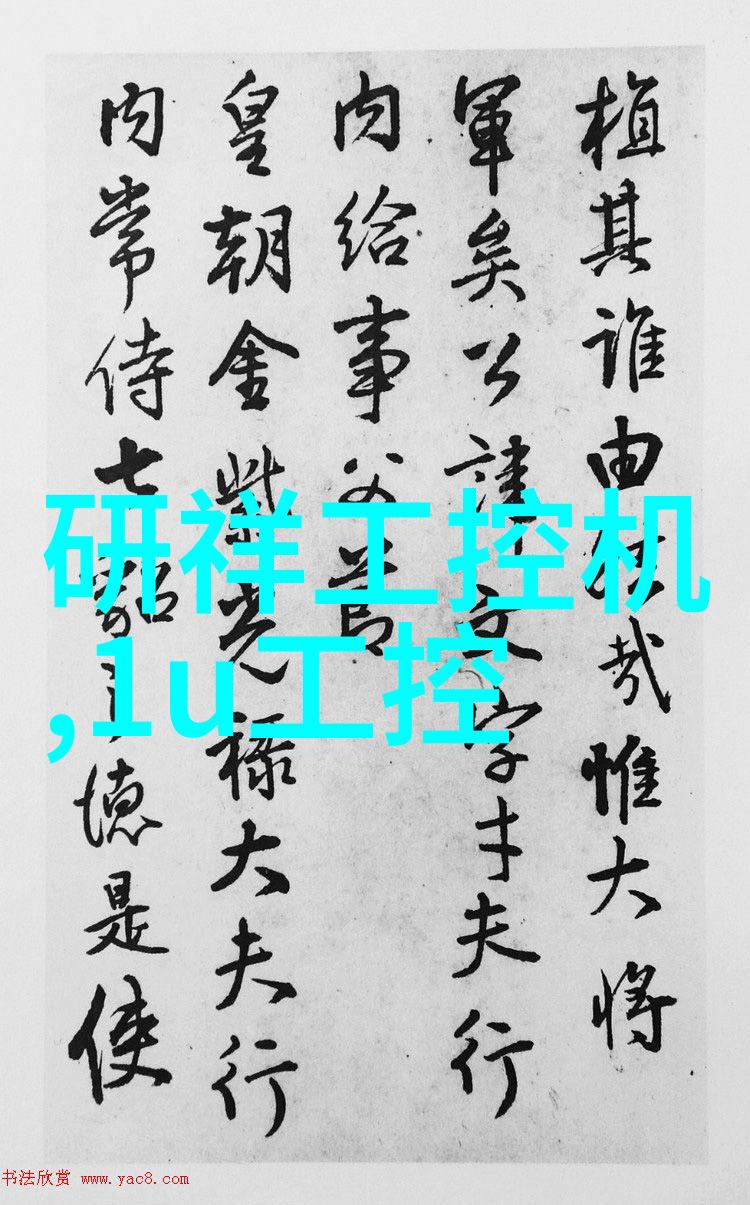 植其誰由哉惟大將
軍矣公諱文字才夫行
內給事父節
皇朝金紫光祿大夫行
內常侍七貂德是使
研祥工控机
,1u工控
书法欣赏 www.yac8.com